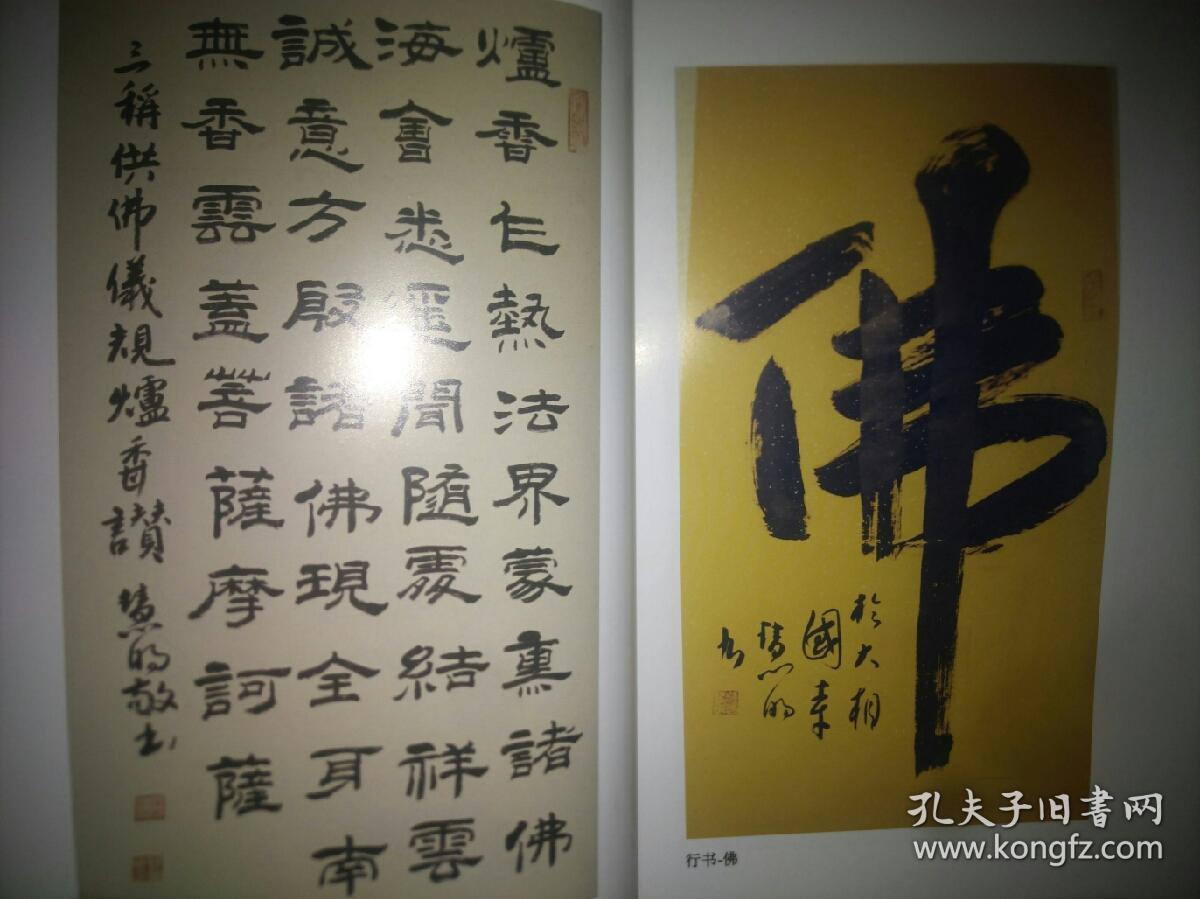 爐香乍熱法界蒙熏諸佛
海會悉遥聞隨處結祥雲
誠意方殷諸佛現全耳南
無香雲蓋菩薩摩訶薩
三稱供佛儀規爐香讃 慧的敬书
佛
於大相
國寺
慧的
书
行书-佛
孔夫子旧書网
www.kongfz.com